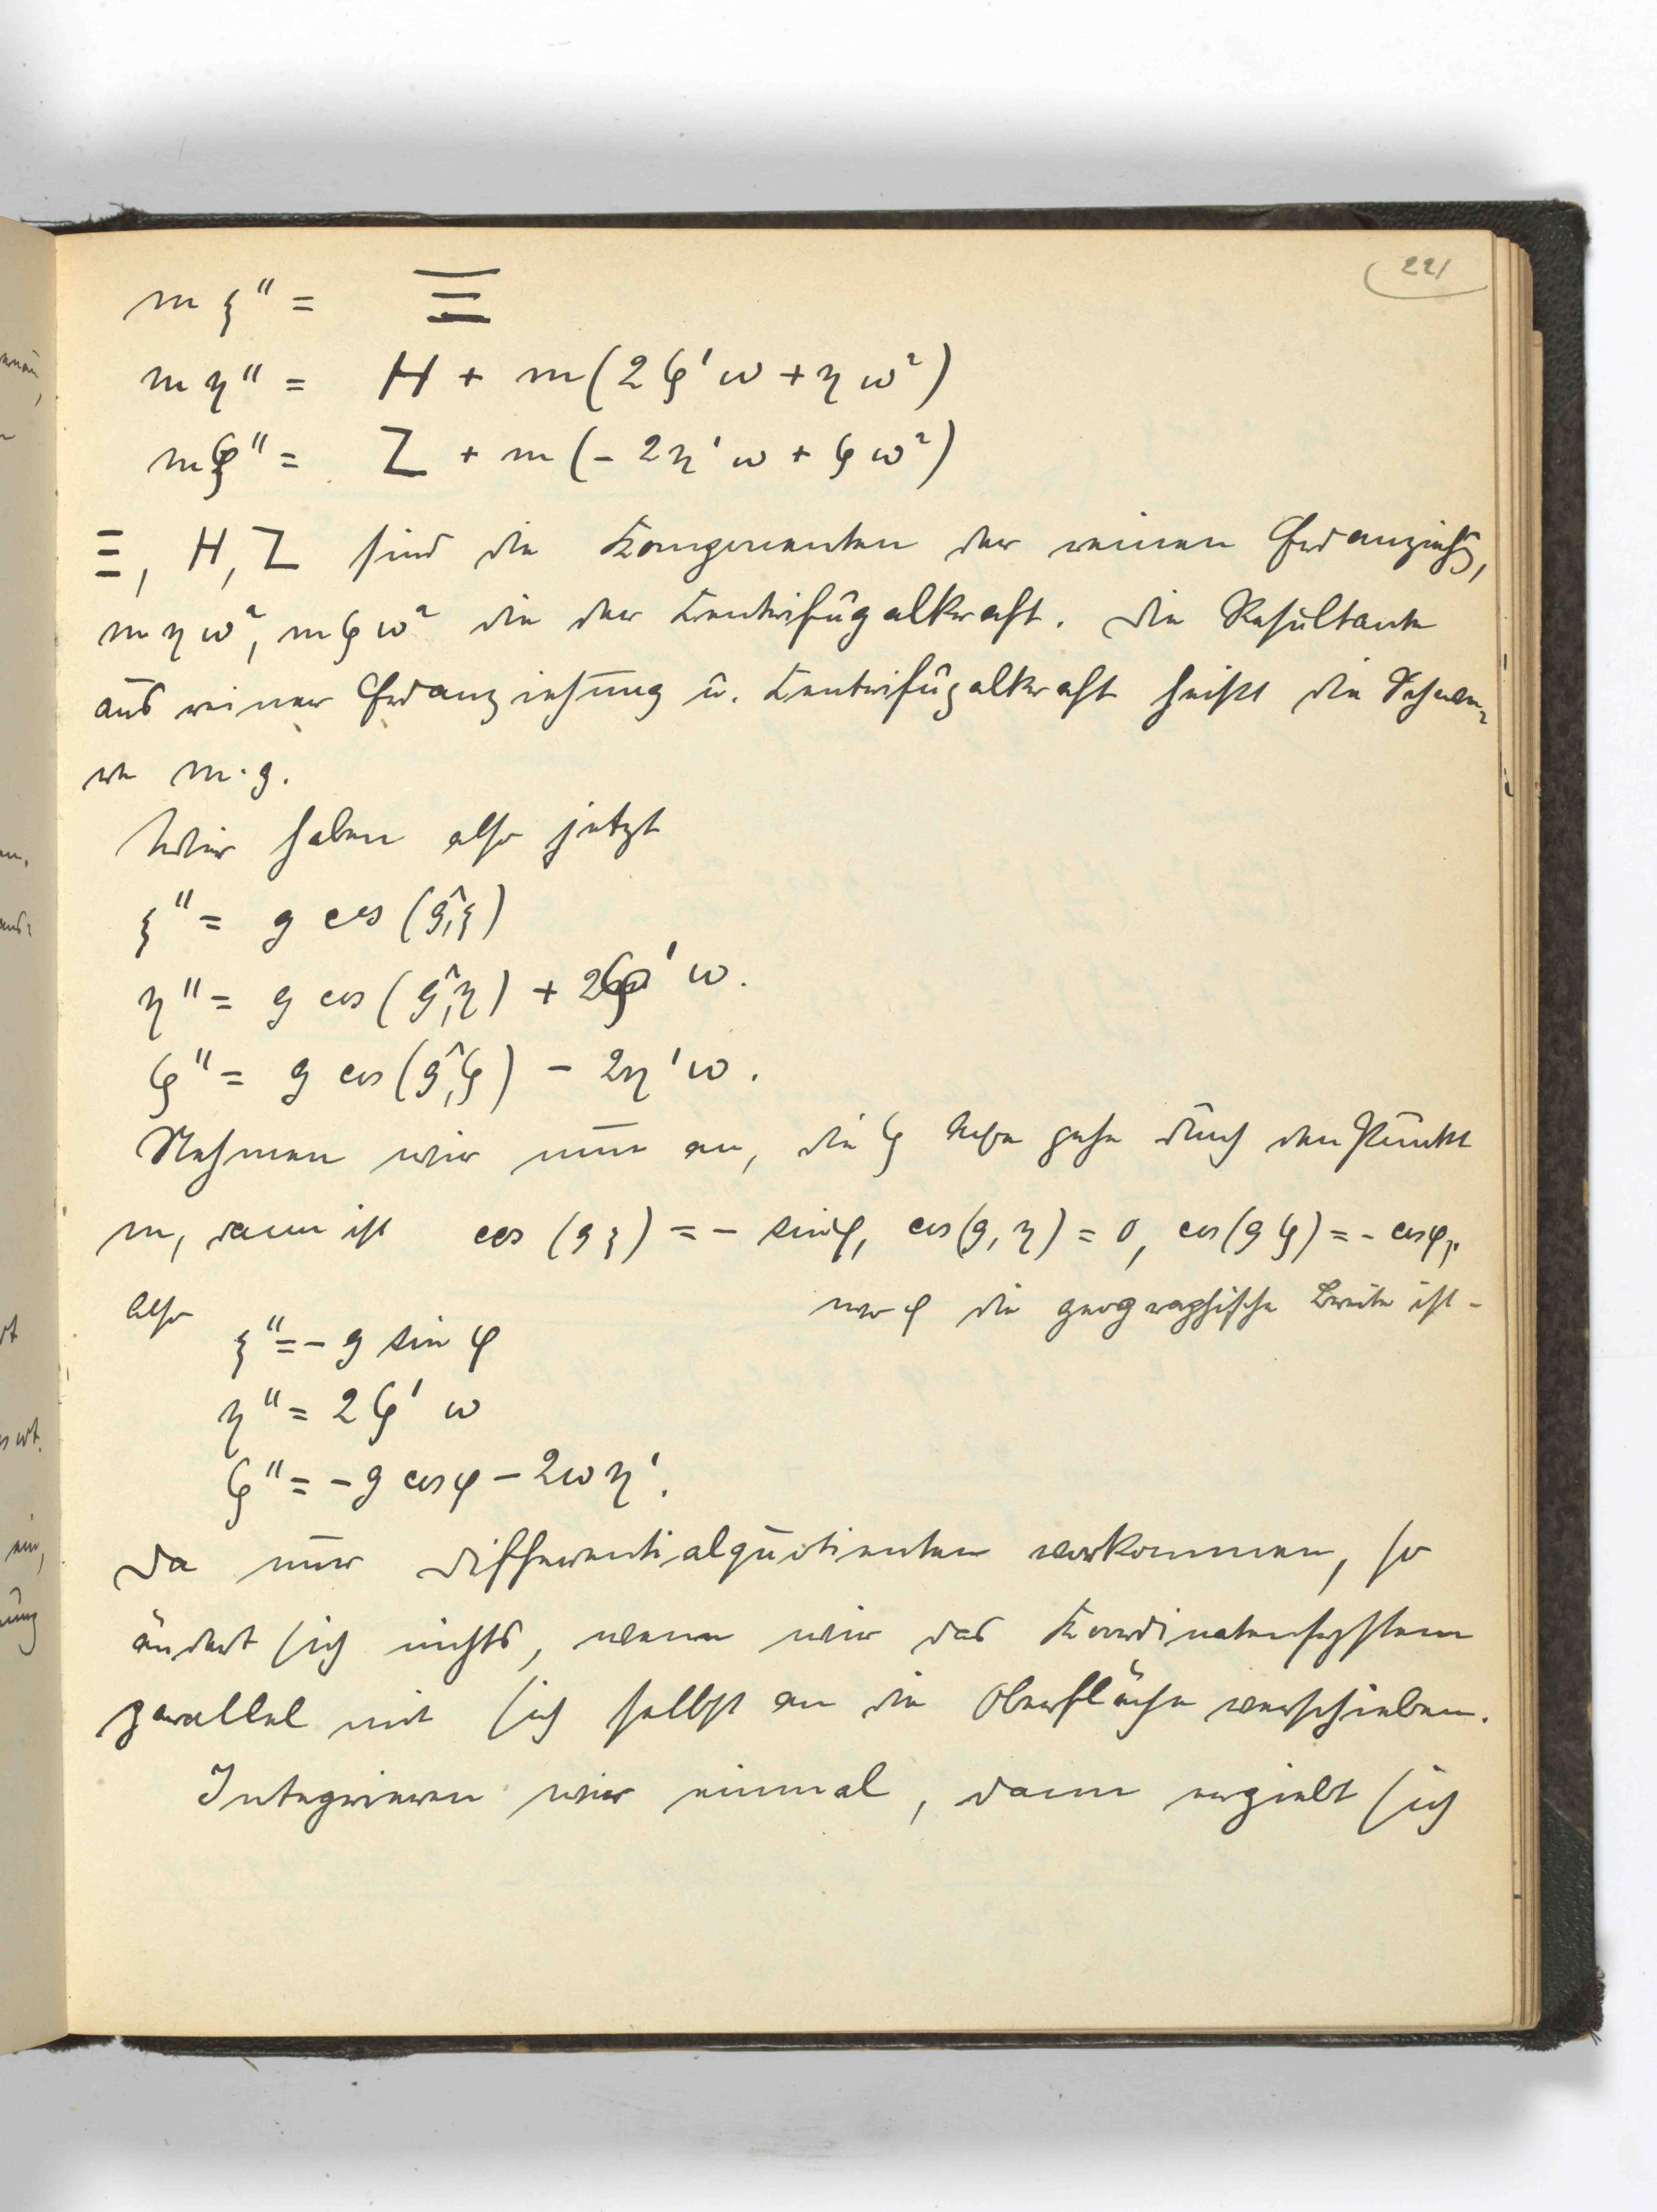 221
m ξ'' = Ξ
m η'' = H + m(2ζ'ω + ηω²)
m ζ'' = Z + m(-2η'ω + ζω²)
Ξ, H, Z sind die Komponenten der reinen Erdanziehg,
mηω², mζω² die der Zentrifugalkraft. Die Resultante
aus reiner Erdanziehung u. Zentrifugalkraft heißt die Schwe-
re m·g.
Wir haben also jetzt
ξ'' = g cos (g,ξ)
η'' = g cos (g,η) + 2ζ'ω.
ζ'' = g cos (g,ζ) - 2η'ω.
Nehmen wir nun an, die ζ Achse gehe durch den Punkt
m, dann ist cos (gξ) = - sinφ, cos(g,η) = 0, cos(gζ) = - cosφ,
wo φ die geographische Breite ist-
Also
ξ'' = - g sin φ
η'' = 2ζ' ω
ζ'' = - g cosφ - 2ωη'.
Da nur Differentialquotienten vorkommen, so
ändert sich nichts, wenn wir das Koordinatensystem
parallel mit sich selbst an die Oberfläche verschieben.
Integrieren wir einmal, dann ergiebt sich